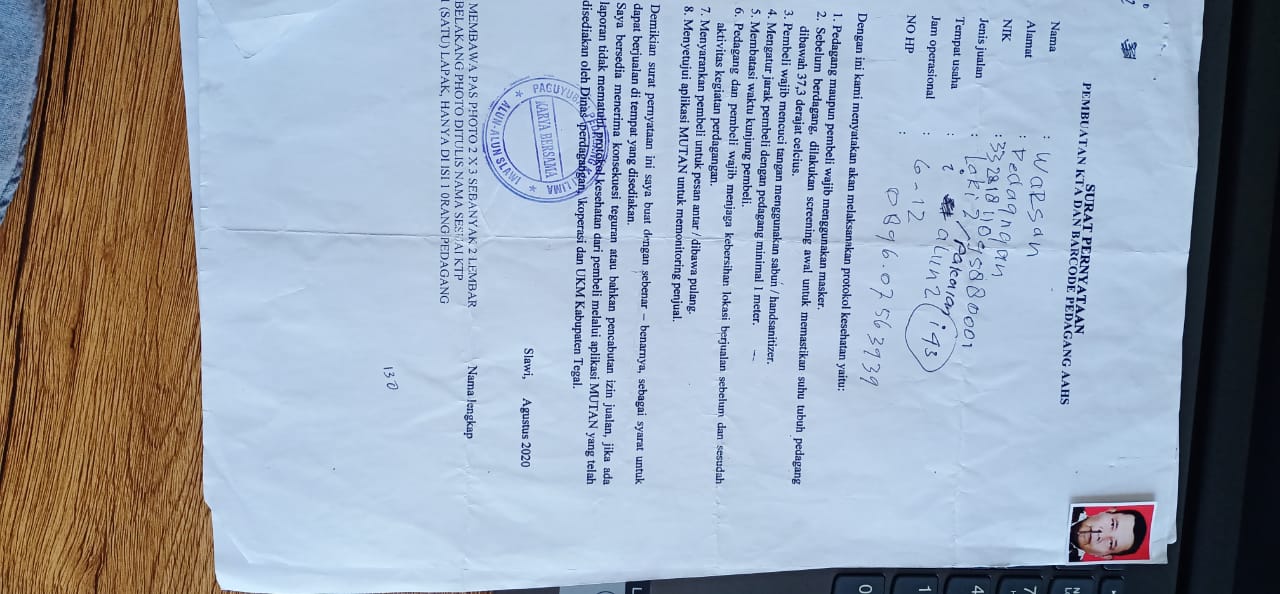 SURAT PERNYATAAN
PEMBUATAN KTA DAN BARCODE PEDAGANG AAHS
Nama : WARSAN
Alamat : Pedagngan
NIK :
Jenis jualan : Laki2 / Pakaian
Tempat usaha : alun2 193
Jam operasional : 6-12
NO HP : 089607563939
Dengan ini kami menyatakan akan melaksanakan protokol kesehatan yaitu:
1. Pedagang maupun pembeli wajib menggunakan masker.
2. Sebelum berdagang, dilakukan screening awal untuk memastikan suhu tubuh pedagang
dibawah 37,3 derajat celcius.
3. Pembeli wajib mencuci tangan menggunakan sabun / handsanitizer.
4. Mengatur jarak pembeli dengan pedagang minimal 1 meter.
5. Membatasi waktu kunjung pembeli.
6. Pedagang dan pembeli wajib menjaga kebersihan lokasi berjualan sebelum dan sesudah
aktivitas kegiatan perdagangan.
7. Menyarankan pembeli untuk pesan antar / dibawa pulang.
8. Menyetujui aplikasi MUTAN untuk memonitoring penjual.
Demikian surat pernyataan ini saya buat dengan sebenar – benarnya, sebagai syarat untuk
dapat berjualan di tempat yang disediakan.
Saya bersedia menerima konsekuesi teguran atau bahkan pencabutan izin jualan, jika ada
laporan tidak mematuhi protokol kesehatan dari pembeli melalui aplikasi MUTAN yang telah
disediakan oleh Dinas perdagangan, koperasi dan UKM Kabupaten Tegal.
PAGUYUBAN LIMA
KARYA BERSAMA
ALUN-ALUN SLAWI
Slawi, Agustus 2020
Nama lengkap
MEMBAWA PAS PHOTO 2 X 3 SEBANYAK 2 LEMBAR
BELAKANG PHOTO DITULIS NAMA SESUAI KTP
1 (SATU) LAPAK, HANYA DI ISI 1 ORANG PEDAGANG
130